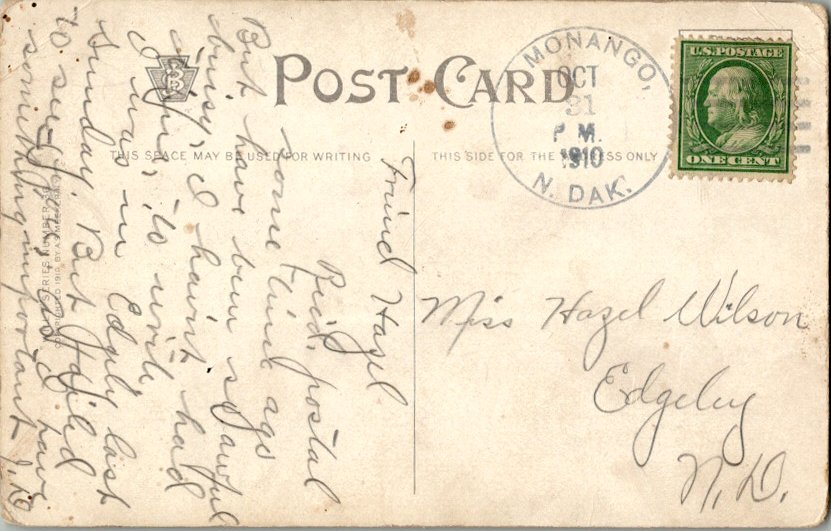 POST CARD
THIS SPACE MAY BE USED FOR WRITING
THIS SIDE FOR THE ADDRESS ONLY
MONANGO,
OCT
31
P M.
1910
N. DAK.
U.S. POSTAGE
ONE CENT
Miss Hazel Wilson
Edgeley
N.D.
Friend Hazel
Rec'd. postal
some time ago
But have been so awful
buisy, I hav'nt had
time, to write
I was in Edgely last
Sunday. But failed
to see you, I have
something important
SERIES NUMBER
COPYRIGHTED 1910, BY